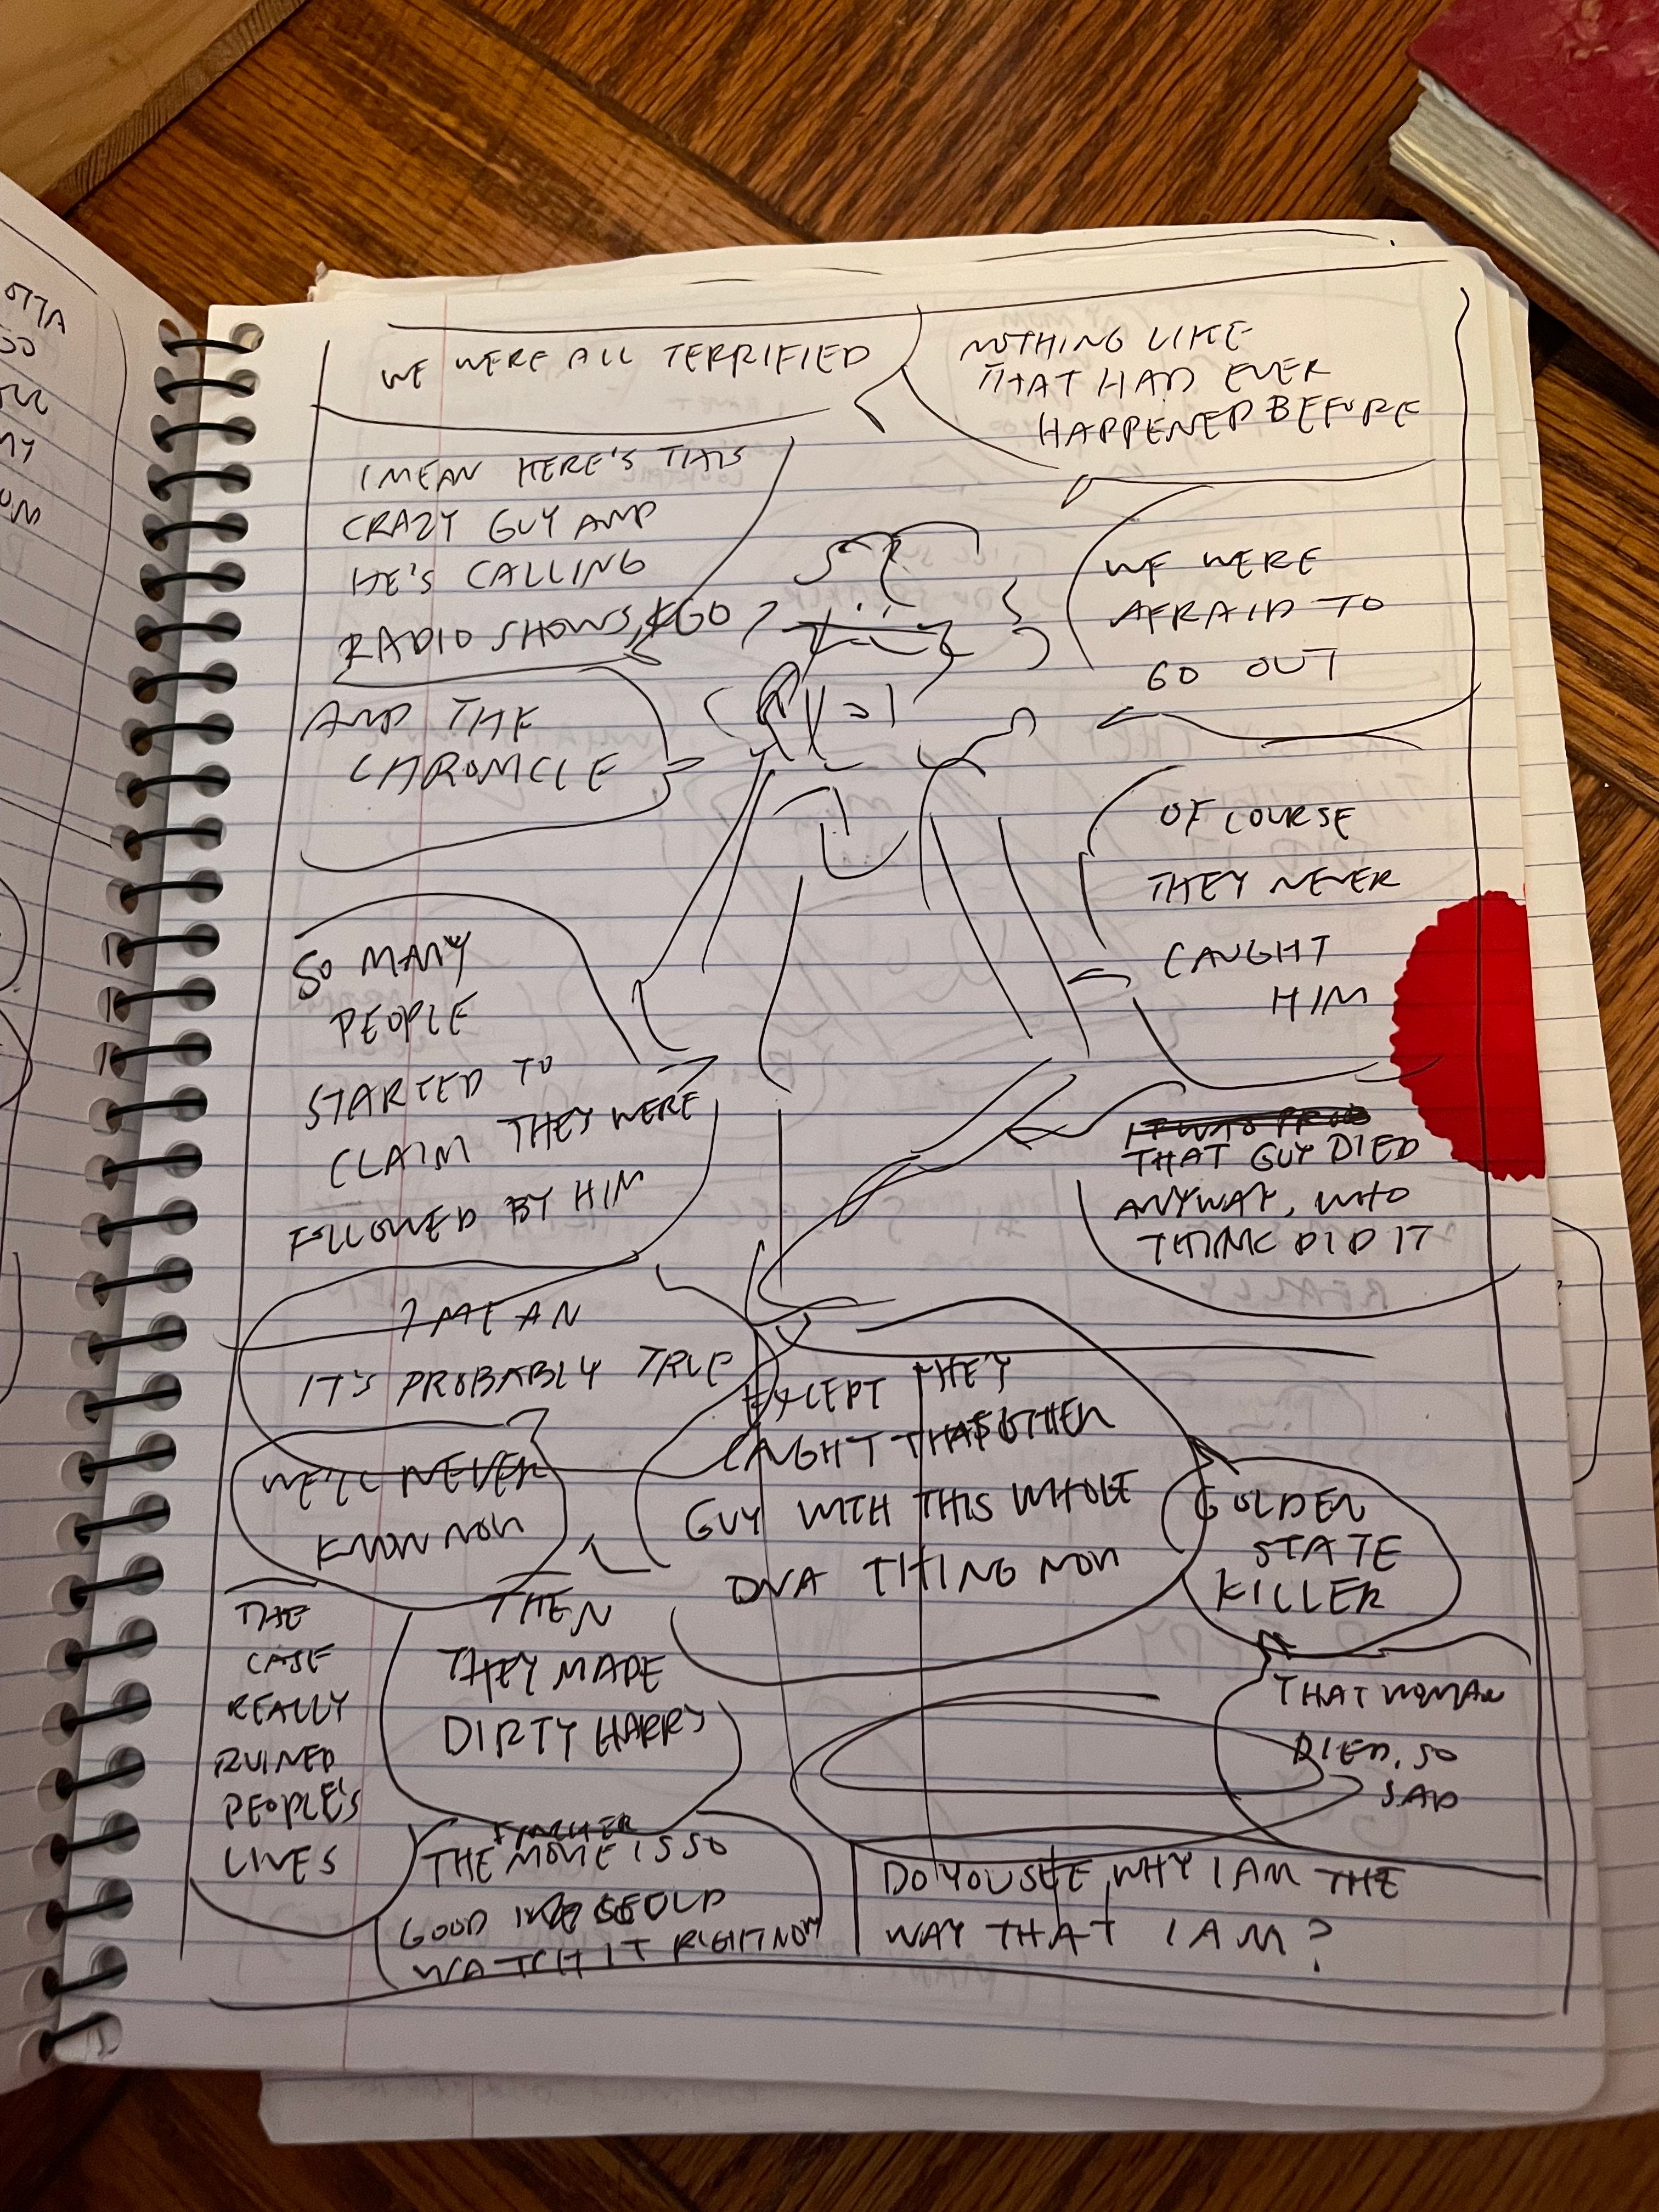 WE WERE ALL TERRIFIED
NOTHING LIKE
THAT HAD EVER
HAPPENED BEFORE
I MEAN HERE'S THIS
CRAZY GUY AND
HE'S CALLING
RADIO SHOWS, KGO
AND THE
CHRONICLE
WE WERE
AFRAID TO
GO OUT
OF COURSE
THEY NEVER
CAUGHT
HIM
SO MANY
PEOPLE
STARTED TO
CLAIM THEY WERE
FOLLOWED BY HIM
THAT GUY DIED
ANYWAY, WHO
THINK DID IT
I MEAN
IT'S PROBABLY TRUE
EXCEPT THEY
CAUGHT THAT OTHER
GUY WITH THIS WHOLE
DNA THING NOW
WE'LL NEVER
KNOW NOW
GOLDEN
STATE
KILLER
THAT WOMAN
DIED, SO
SAD
THE
CASE
REALLY
RUINED
PEOPLE'S
LIVES
THEN
THEY MADE
DIRTY HARRY
FINCHER
THE MOVIE IS SO
GOOD
WATCH IT RIGHT NOW
DO YOU SEE WHY I AM THE
WAY THAT I AM?